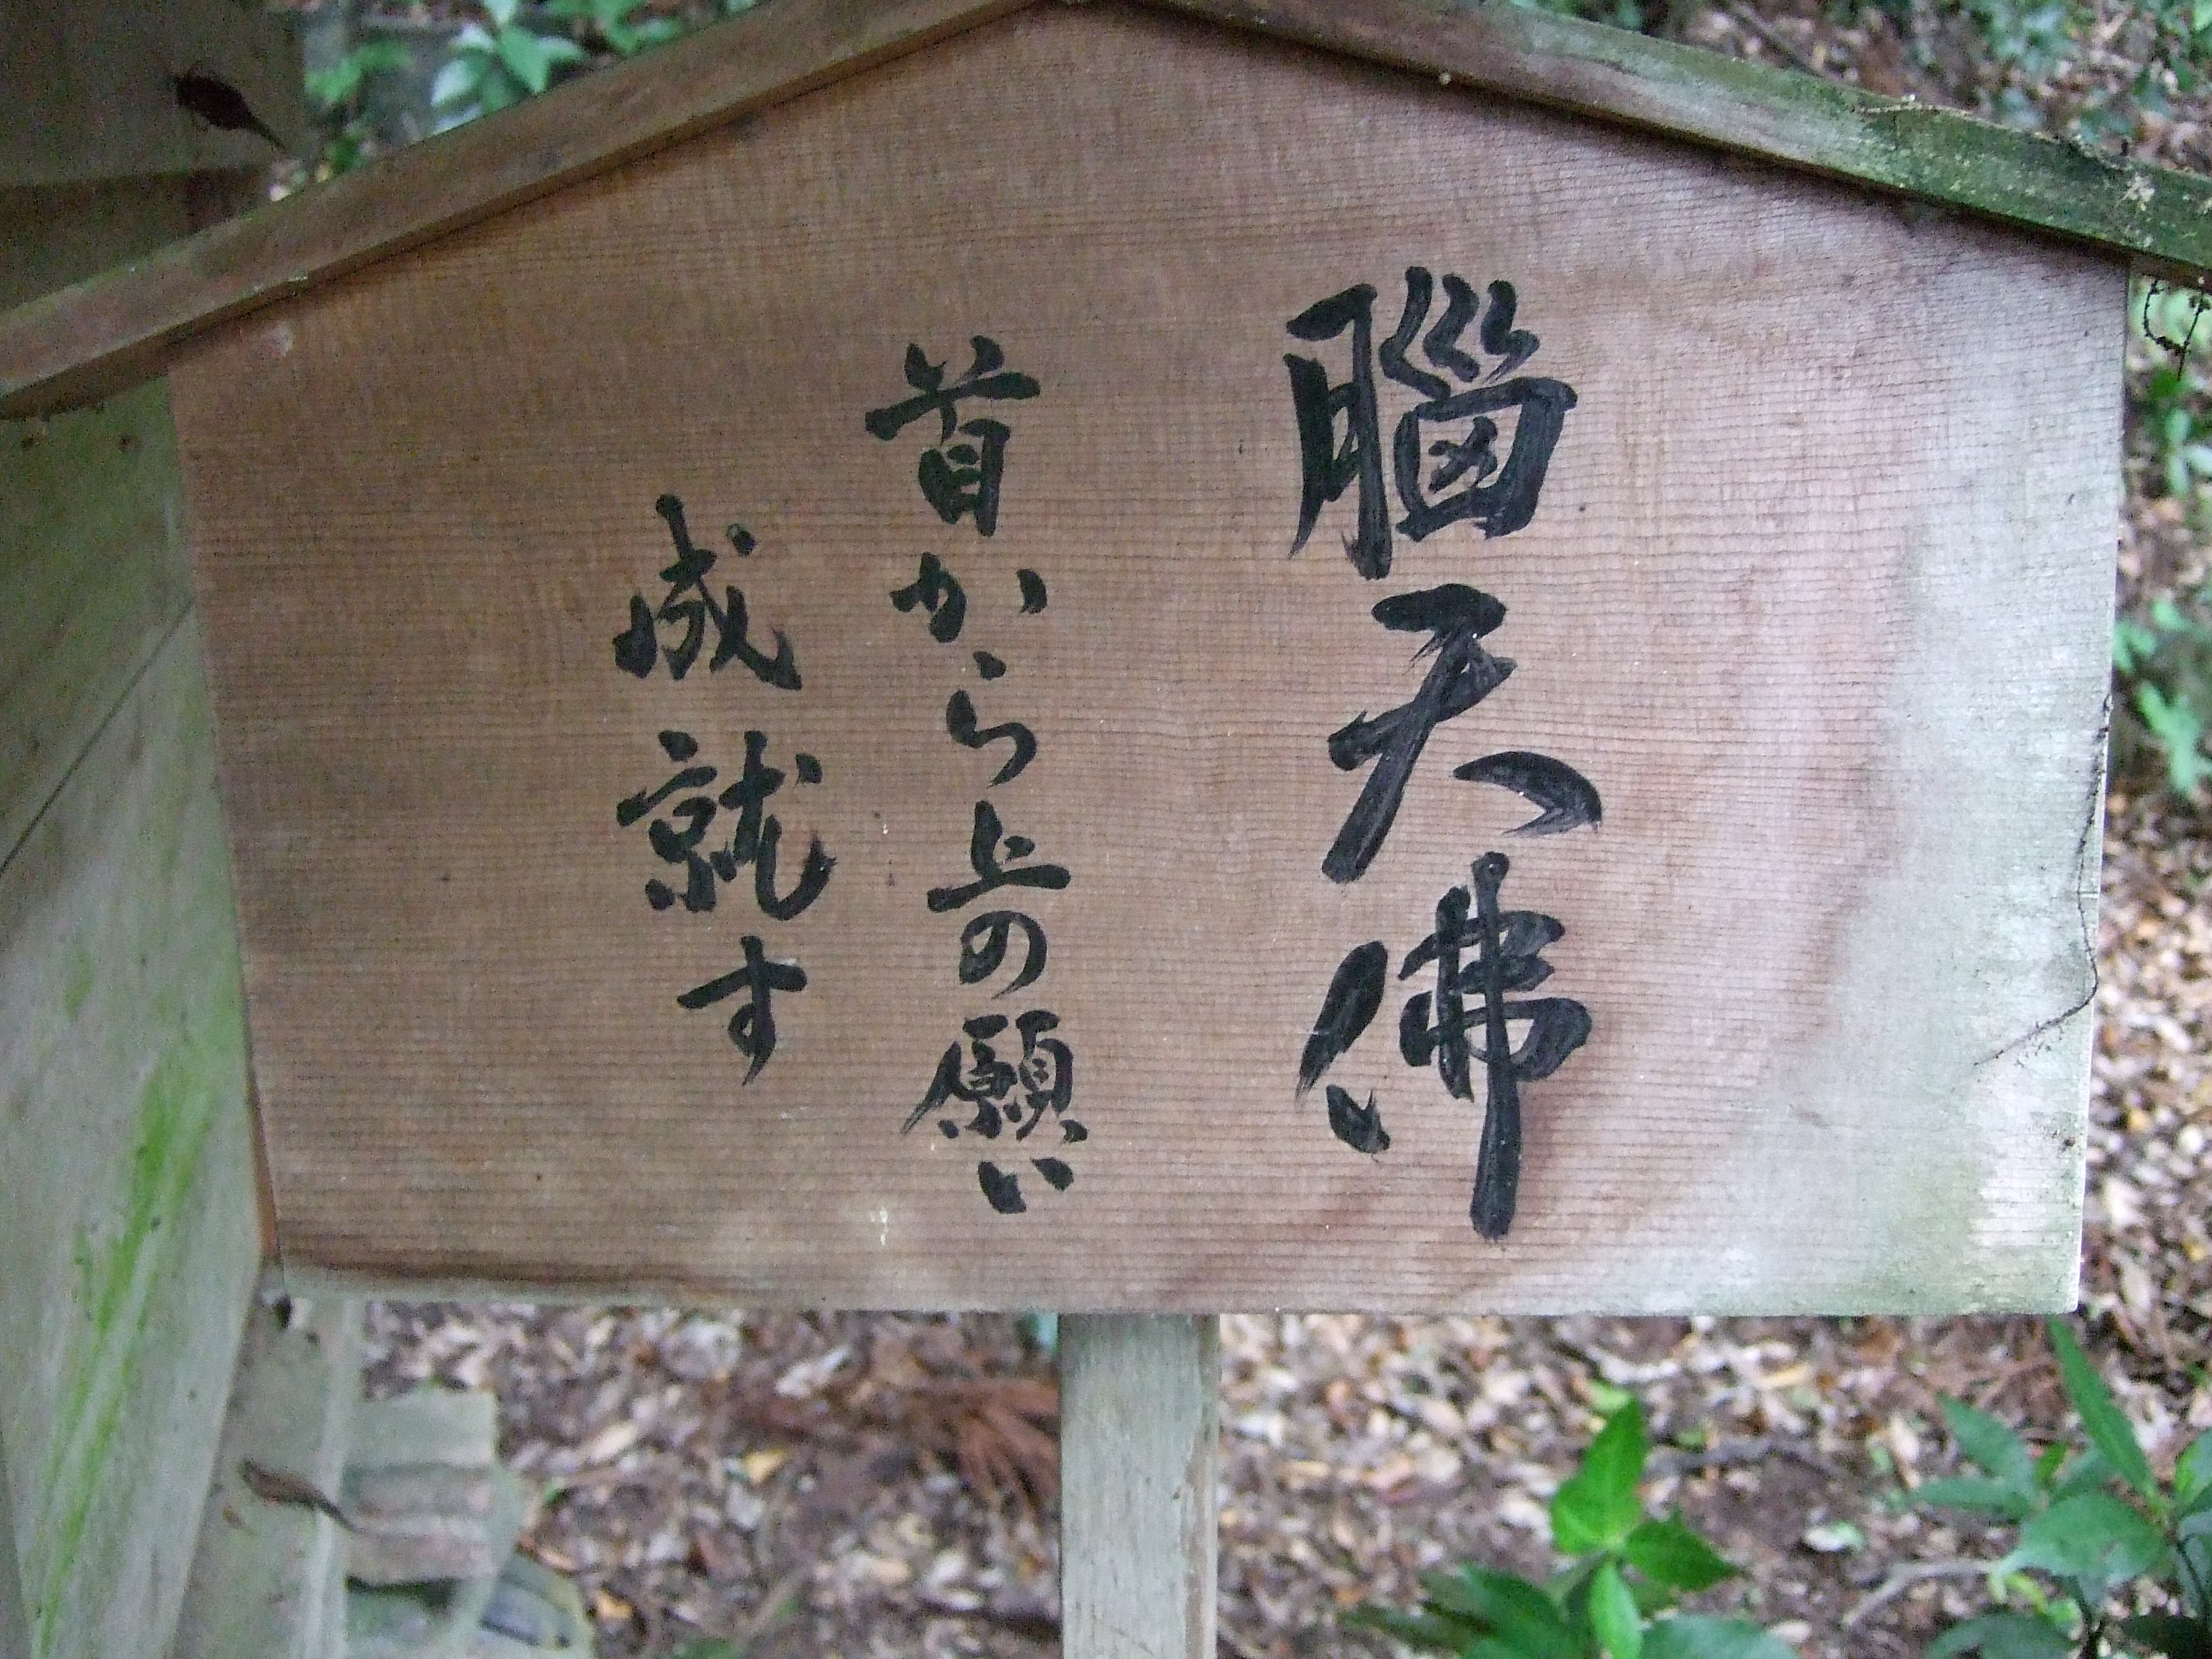 腦天佛
首から上の願い
成就す